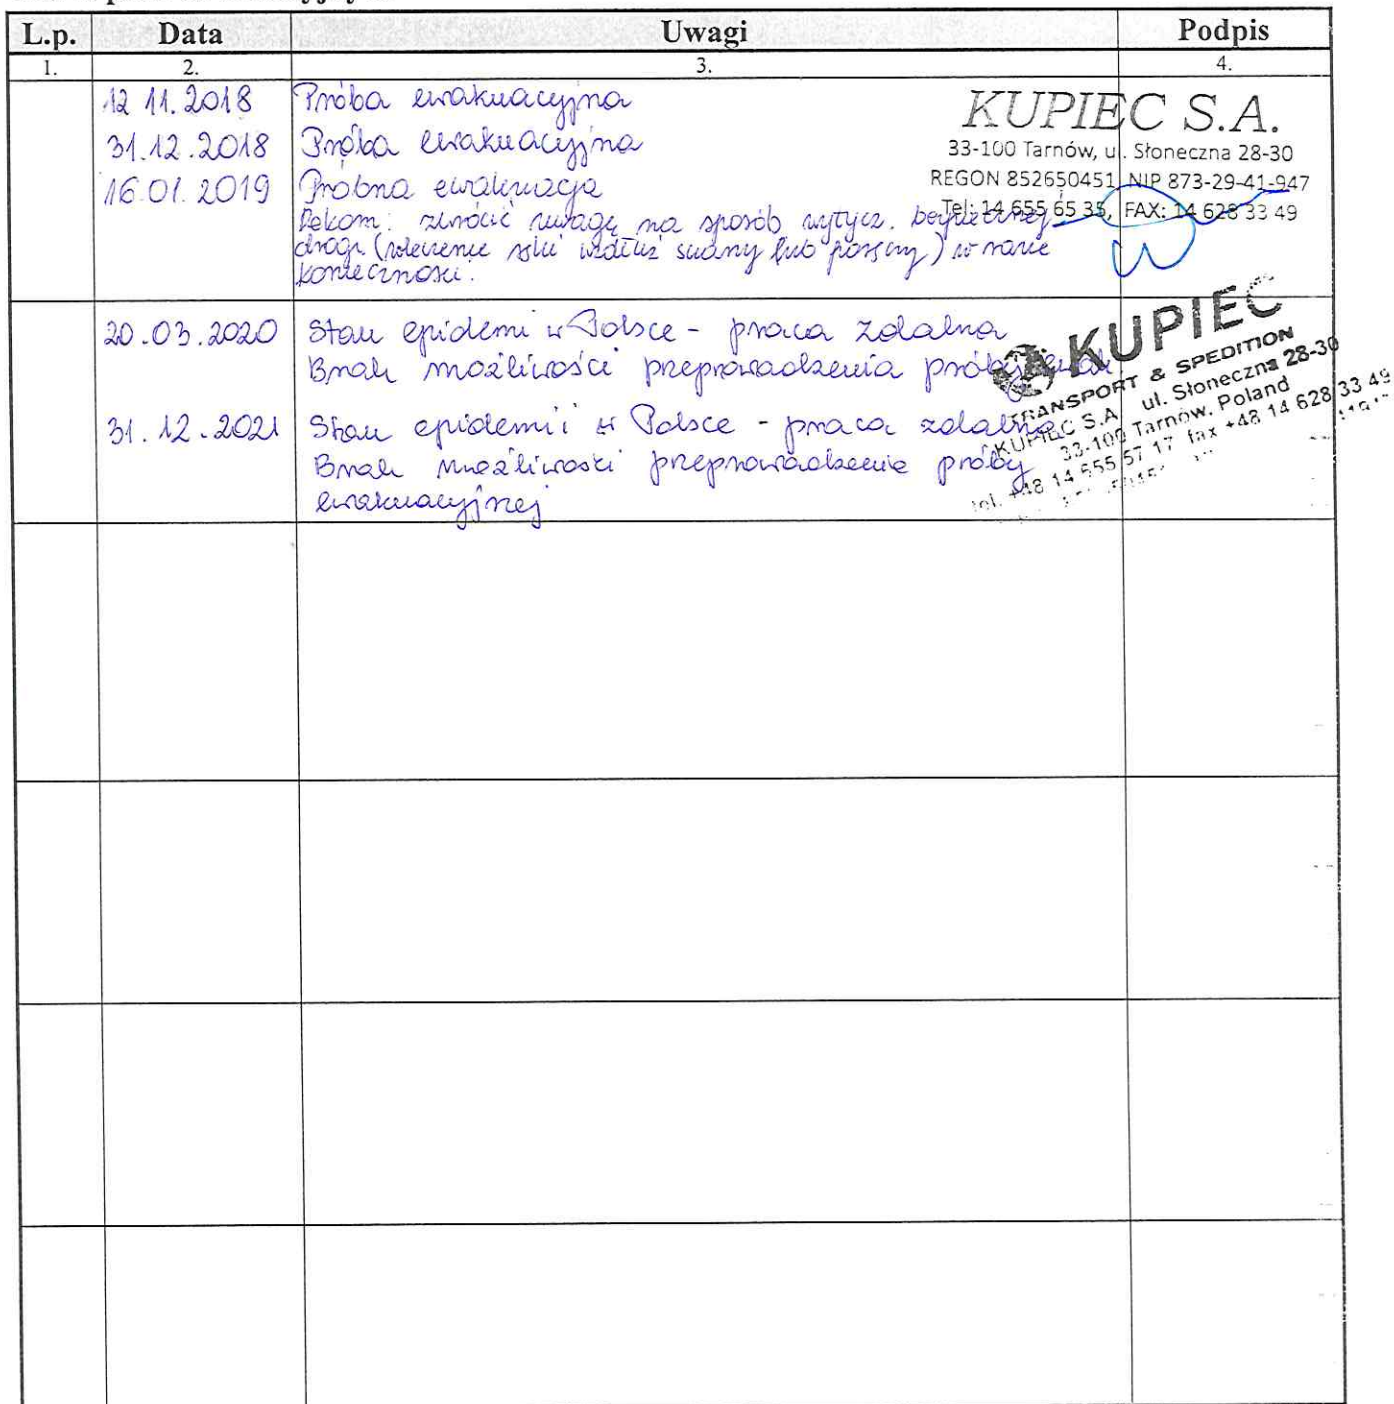 L.p. Data Uwagi Podpis
1. 2. 3. 4.
12 11.2018 Próba ewakuacyjna
31.12.2018 Próba ewakuacyjna
16.01.2019 Próbna ewakuacja
Rekom: zwrócić uwagę na sposób wytycz. bezpiecznej
drogi (wzdłuż ściany lub poręczy) w razie
konieczności.
KUPIEC S.A.
33-100 Tarnów, ul. Słoneczna 28-30
REGON 852650451 NIP 873-29-41-947
Tel: 14 655 65 35, FAX: 14 628 33 49
20.03.2020 Stan epidemi w Polsce - praca zdalna
Brak możliwości przeprowadzenia próby
31.12.2021 Stan epidemii w Polsce - praca zdalna
Brak możliwości przeprowadzenie próby
ewakuacyjnej
KUPIEC
TRANSPORT & SPEDITION
KUPIEC S.A. ul. Słoneczna 28-30
33-100 Tarnów, Poland
tel. +48 14 655 57 17 fax +48 14 628 33 49